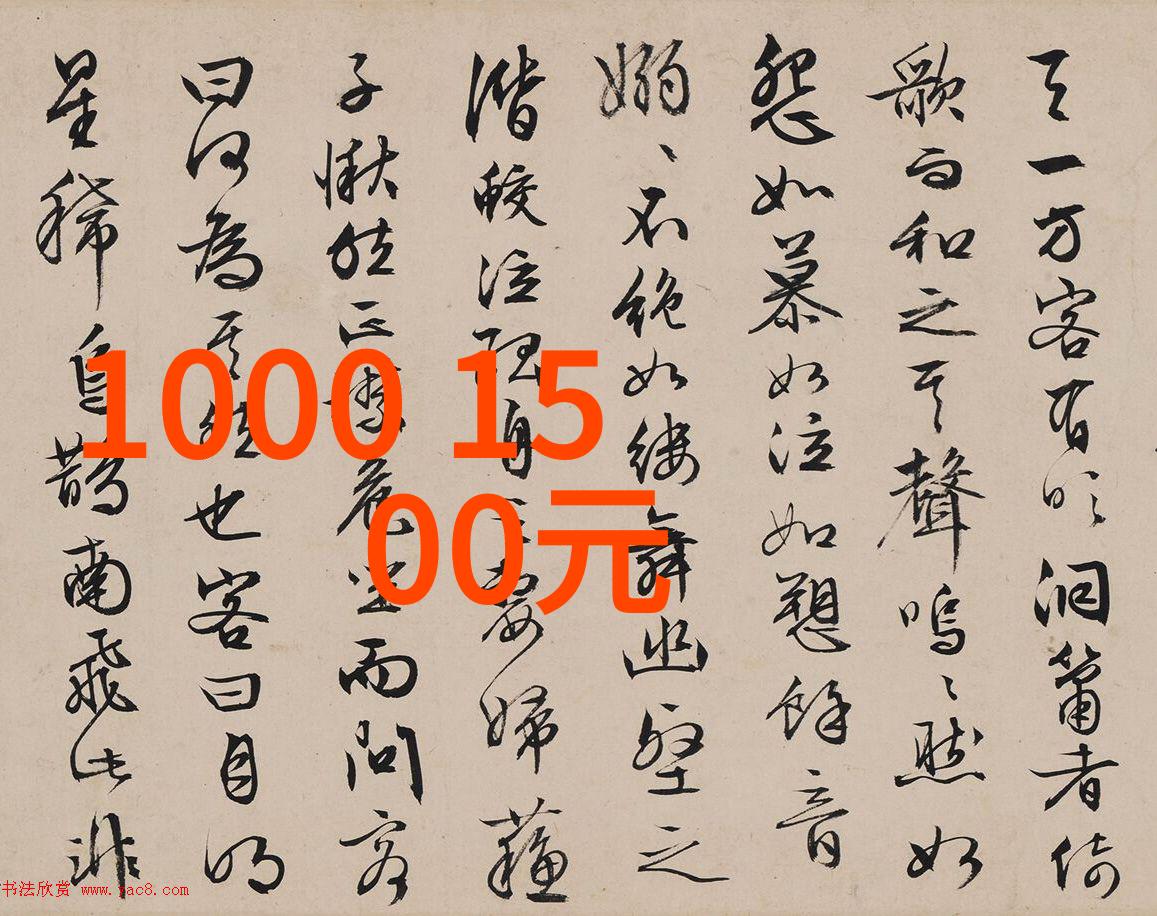 天一方客有吹洞簫者倚
歌而和之其聲嗚〻然如
怨如慕如泣如愬餘音
嫋〻不絕如縷舞幽壑之
潛蛟泣孤舟之嫠婦蘇
子愀然正襟危坐而問客
曰何為其然也客曰月明
星稀烏鵲南飛此非
1000 15
00元
书法欣赏 www.yac8.com